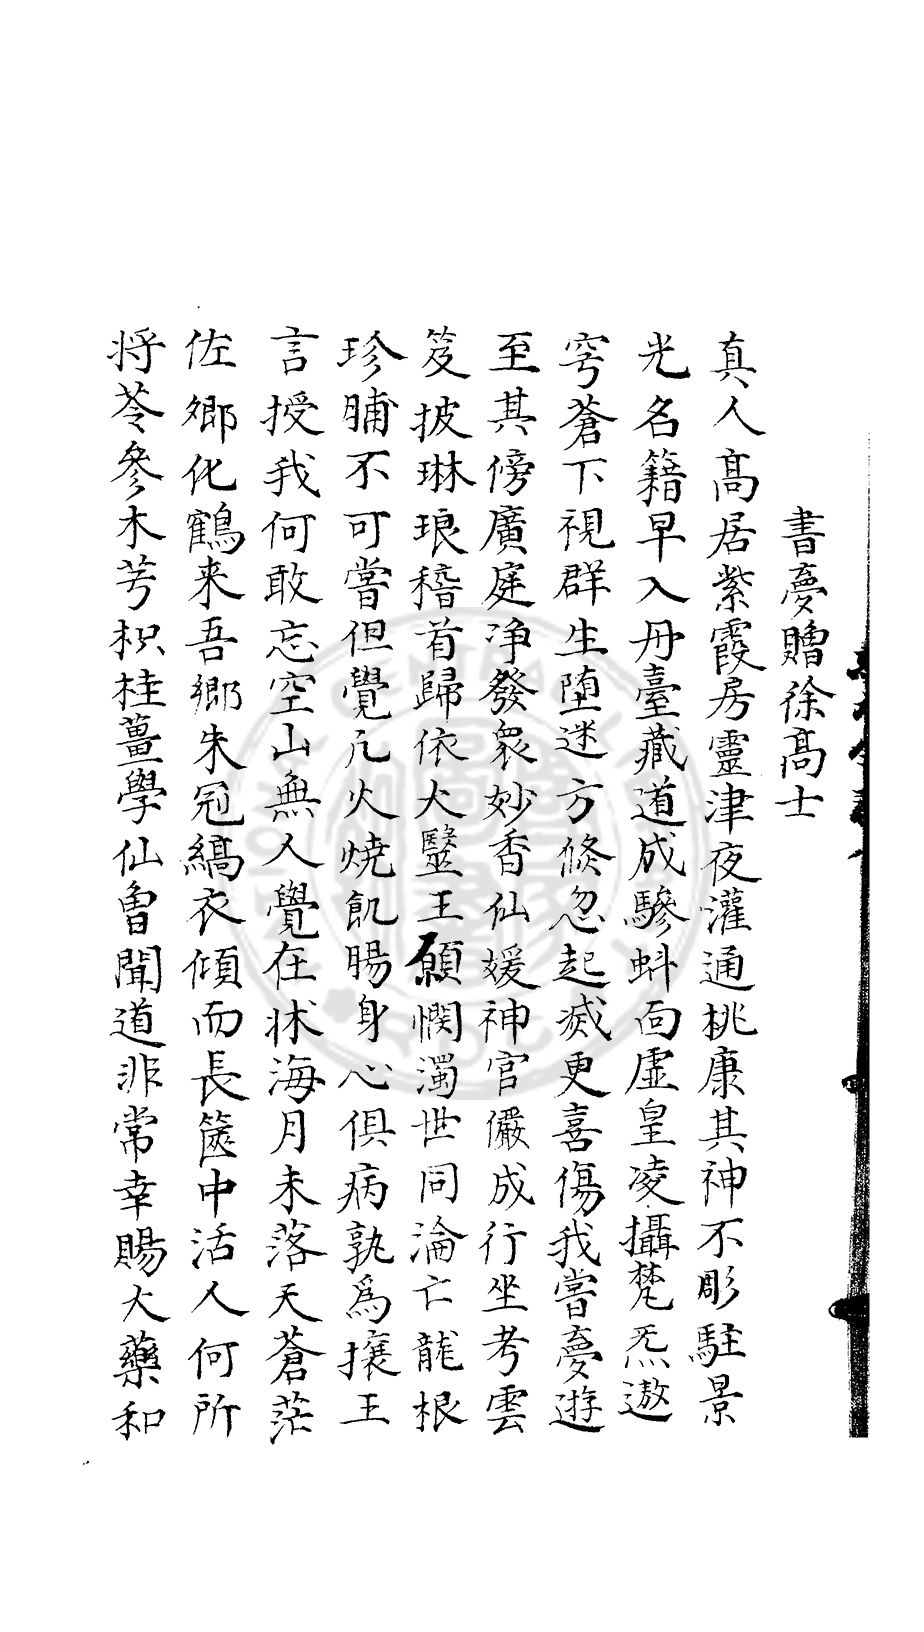 書夢贈徐高士
真人高居紫霞房靈津夜灌通桃康其神不彫駐景
光名籍早入丹臺藏道成驂蚪向虛皇凌攝梵炁遨
穹蒼下視群生堕迷方倏忽起滅更喜傷我嘗夢遊
至其傍廣庭净發衆妙香仙媛神官儼成行坐考雲
笈披琳琅稽首歸依大毉王願憫濁世同淪亡龍根
珍脯不可嘗但覺凡火燒飢腸身心俱病孰爲攘王
言授我何敢忘空山無人覺在牀海月未落天蒼茫
佐卿化鶴来吾鄉朱冠縞衣傾而長篋中活人何所
将苓參木芍枳桂薑學仙曾聞道非常幸賜大藥和